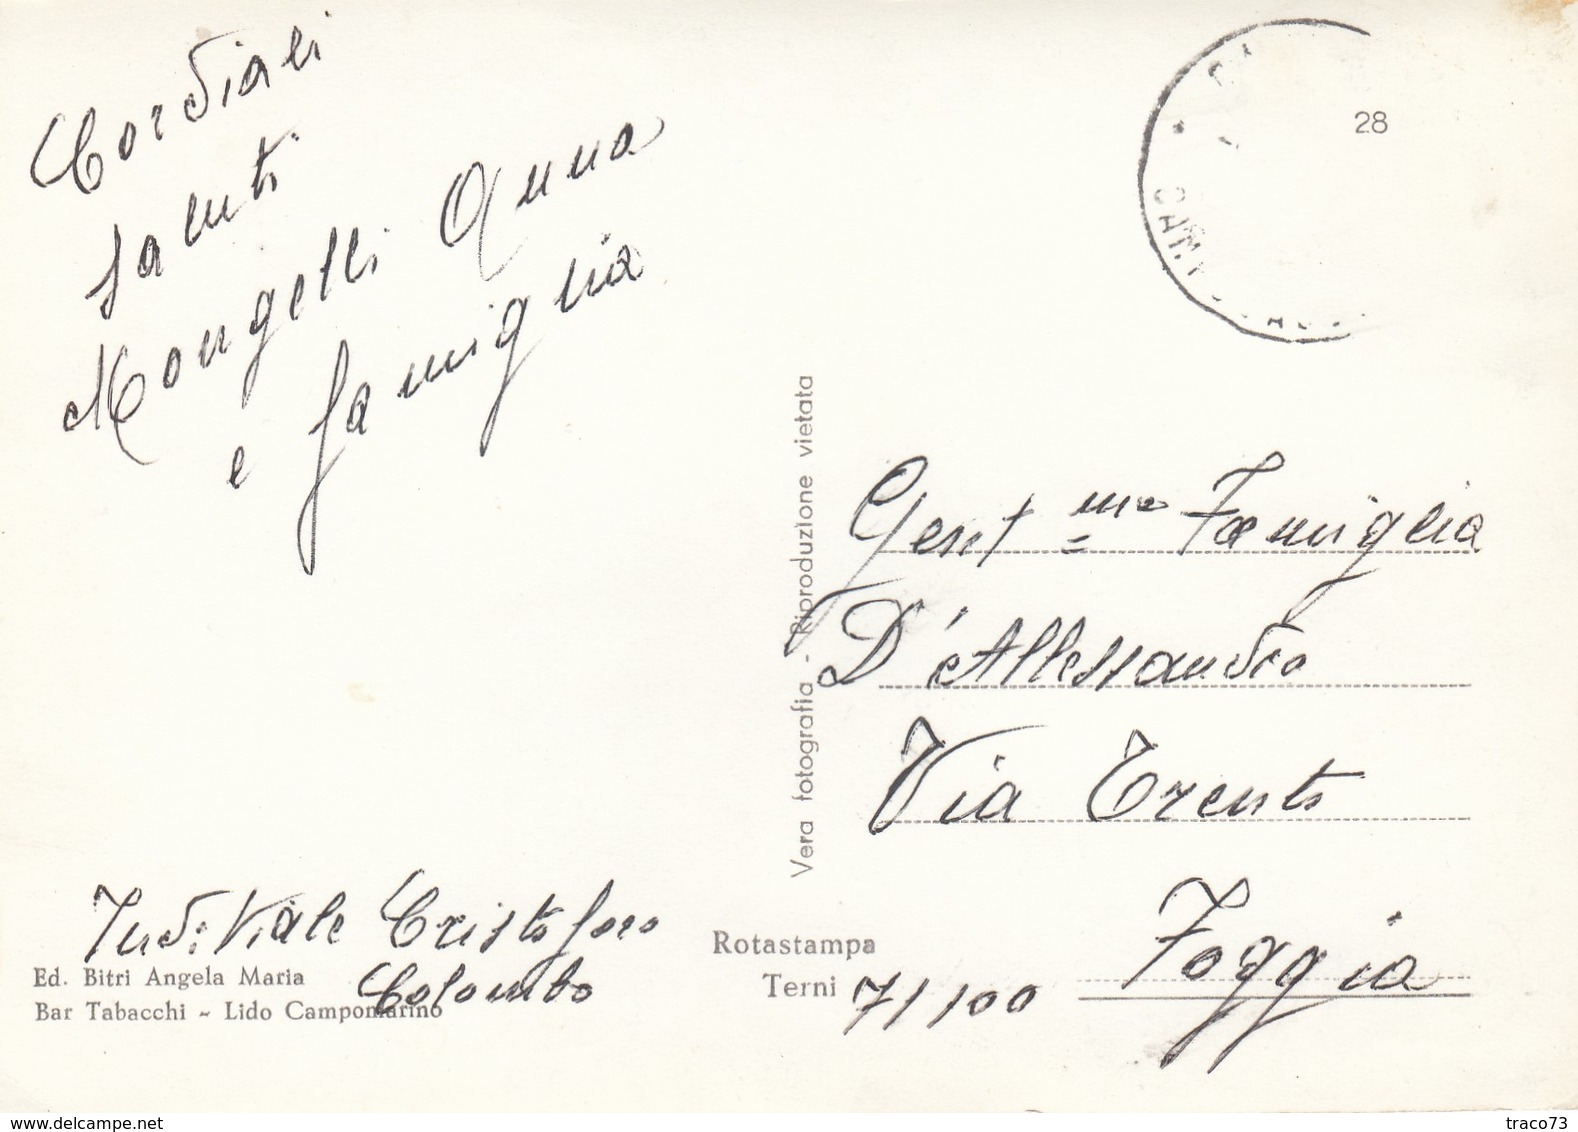 Cordiali
saluti
Mongelli Anna
e famiglia
28
Vera fotografia - Riproduzione vietata
Gent.ma Famiglia
D'Allessandro
Via Trento
71100 Foggia
Indi: Viale Cristoforo
Colombo
Ed. Bitri Angela Maria
Bar Tabacchi - Lido Campomarino
Rotastampa
Terni
traco73